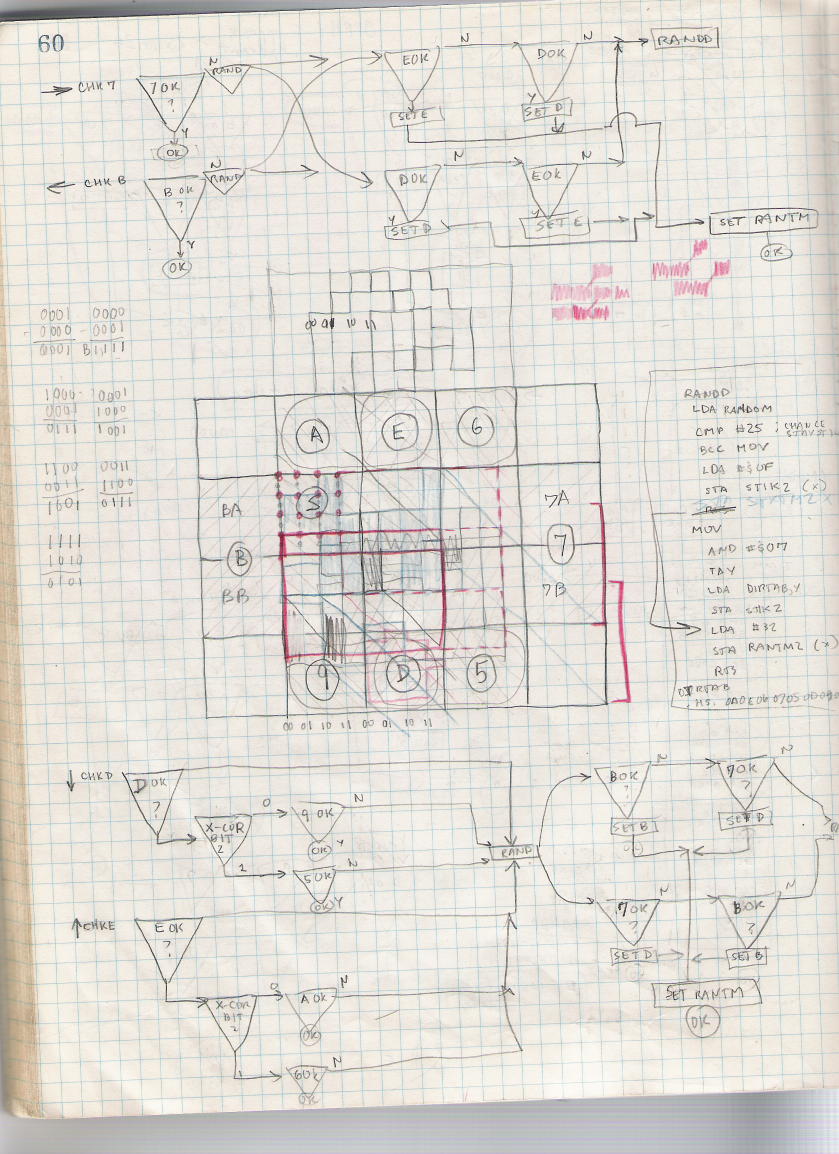 60
→ CHK 7
7 OK
?
Y
OK
N
RAND
EOK
SET E
N
DOK
Y
SET D
N
RANDD
← CHK B
B OK
?
Y
OK
N
RAND
DOK
Y
SET D
N
EOK
Y
SET E
N
SET RANTM
OK
0001 0000
0000 - 0001
0001 B1111
1000 0001
0001 1000
0111 1001
1100 0011
1001 0111
1111
1010
0101
00 01 10 11
A
E
6
BA
S
7A
B
7
BB
7B
9
D
5
00 10 01 11 00 10 01 11
RANDD
LDA RANDOM
CMP #25 ; CHANCE
BCC MOV
LDA #$0F
STA STIK2 (X)
MOV
AND #$07
TAY
LDA DIRTAB,Y
STA STIK2
LDA #32
STA RANTM2 (X)
RTS
DIRTAB
↓ CHKD
D OK
?
X-COR
BIT
2
0
9 OK
N
OK
Y
1
5 OK
N
OK Y
RAND
B OK
?
N
SET B
7 OK
?
N
SET D
↑ CHKE
E OK
?
X-COR
BIT
2
0
A OK
N
OK
1
6 OK
N
OK
7 OK
?
N
SET D
B OK
?
N
SET B
SET RANTM
OK